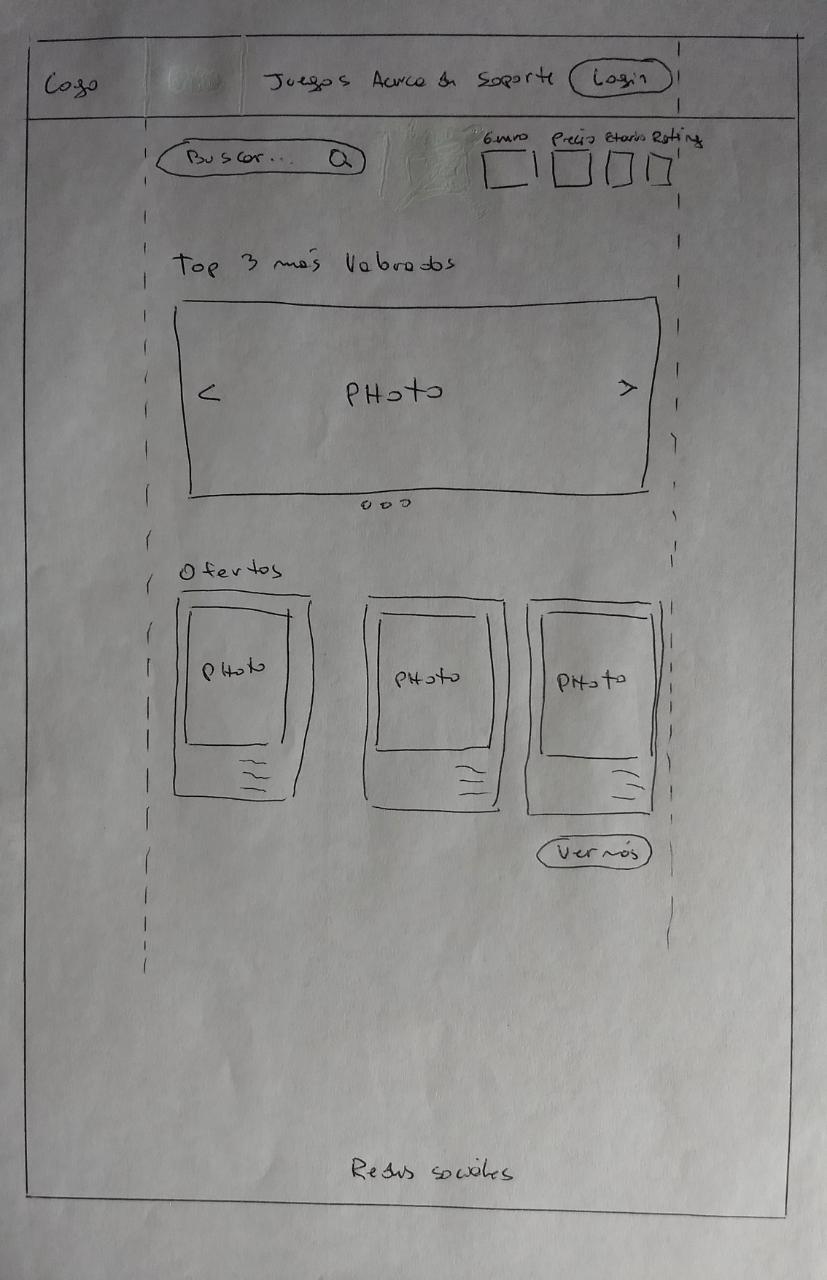 Logo Juegos Acerca de Soporte Login
Buscar...
Genero Precio Etario Rating
Top 3 más Valorados
< PHoto >
Ofertas
PHoto PHoto PHoto
Ver más
Redes sociales